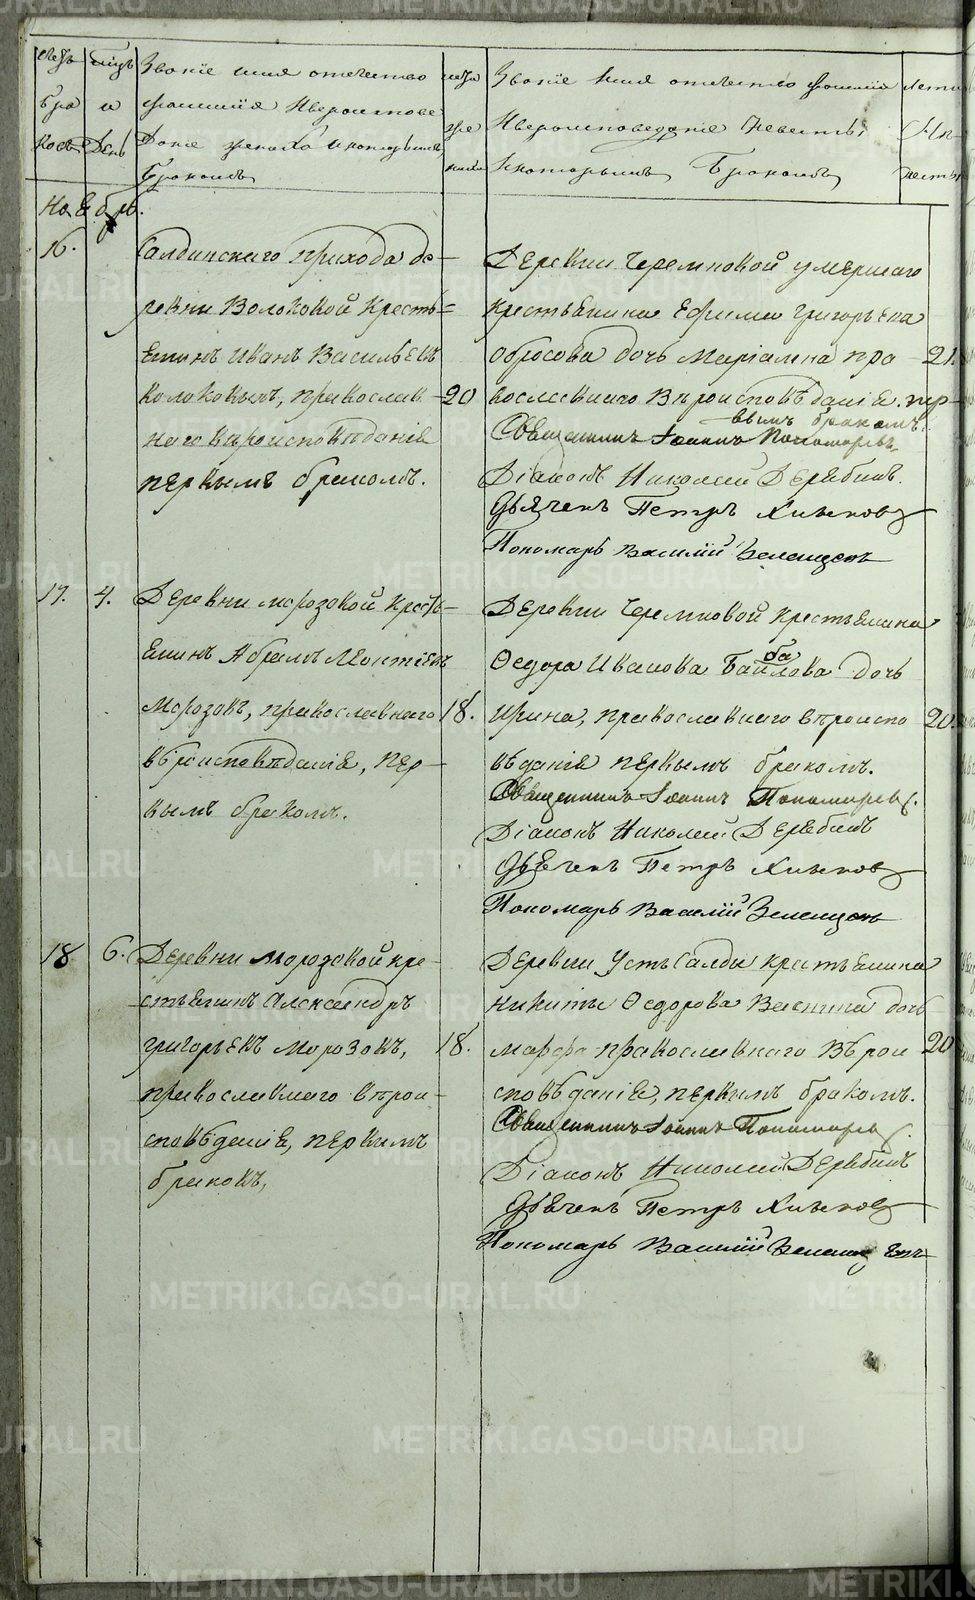 METRIKI.GASO-URAL.RU
Звание имя отчество
лета
Звание имя отчество фамилия
лета
бра
и
фамилия и вероиспове
же
и вероисповедание невесты
не
ковъ
День
дание жениха и которымъ
ниха
и которымъ бракомъ
весты
бракомъ
Ноябрь.
16.
Салдинскаго прихода де-
ревни Волоковой кресть-
янинъ Иванъ Васильевъ
православ-
20
наго вѣроисповѣданія
первымъ бракомъ.
Деревни Черемновой умершаго
крестьянина Ефима Григорьева
дочь Маріамна пра-
21.
вославнаго вѣроисповѣданія, пер-
вымъ бракомъ.
Священникъ Іоаннъ Пономаревъ.
Діаконъ Николай Дерябинъ.
Дьячекъ Петръ Хлыновъ
Пономарь Василій Зеленцовъ
17.
4.
Деревни Морозовой кресть-
янинъ Абрамъ Леонтіевъ
Морозовъ, православнаго
18.
вѣроисповѣданія, пер-
вымъ бракомъ.
Деревни Черемновой крестьянина
Федора Иванова дочь
Ирина, православнаго вѣроиспо
20.
вѣданія первымъ бракомъ.
Священникъ Іоаннъ Пономаревъ.
Діаконъ Николай Дерябинъ
Дьячекъ Петръ Хлыновъ
Пономарь Василій Зеленцовъ
18
6.
Деревни Морозовой кре-
стьянинъ Александръ
Григорьевъ Морозовъ,
18.
православнаго вѣрои-
сповѣданія, первымъ
бракомъ,
Деревни Усть Салды крестьянина
Никиты Федорова дочь
Марфа православнаго вѣрои
20
сповѣданія, первымъ бракомъ.
Священникъ Іоаннъ Пономаревъ.
Діаконъ Николай Дерябинъ
Дьячекъ Петръ Хлыновъ
Пономарь Василій Зеленцовъ
METRIKI.GASO-URAL.RU